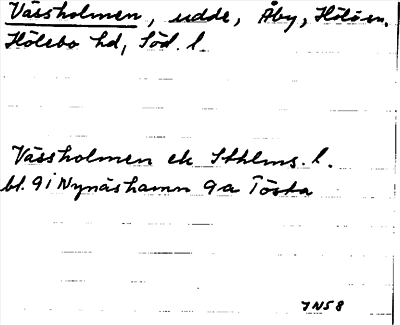 Vässholmen, udde, Åby, Hölö sn.
Hölebo hd, Söd. l.
Vässholmen ek Sthlms. l.
bl. 9i Nynäshamn 9a Tösta
7N58